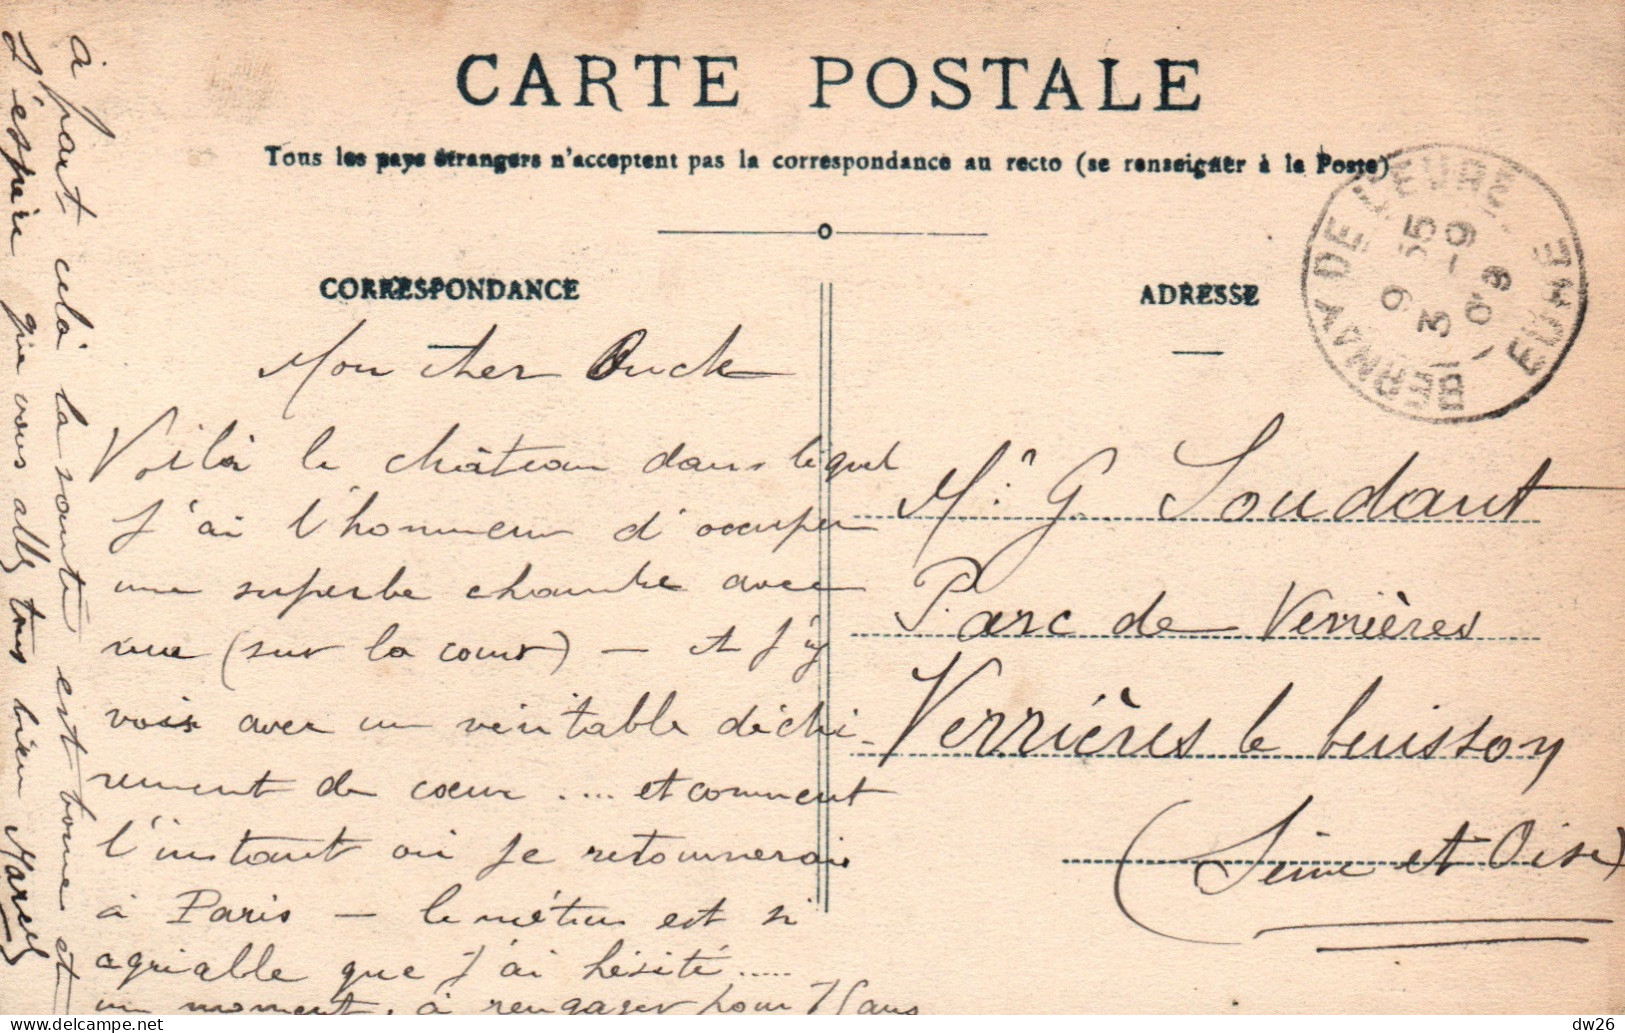 CARTE POSTALE
Tous les pays étrangers n'acceptent pas la correspondance au recto (se renseigner à la Poste)
CORRESPONDANCE
ADRESSE
BERNAY DE L'EURE
9 55
3 -9
09
EURE
Mon cher
Voilà le château dans lequel
J'ai l'honneur d'occuper
une superbe chambre avec
vue (sur la cour) — et j'y
vois avec un véritable déchi-
rement de coeur .... et comment
l'instant où je retournerai
à Paris — le métier est si
agréable que j'ai hésité.....
un moment, à rengager pour 15 ans
à part celà la santé est bonne et
J'espère que vous allez tous bien Marcel
Mr: G. Soudant
Parc de Verrières
Verrières le buisson
(Seine et Oise)
dw26